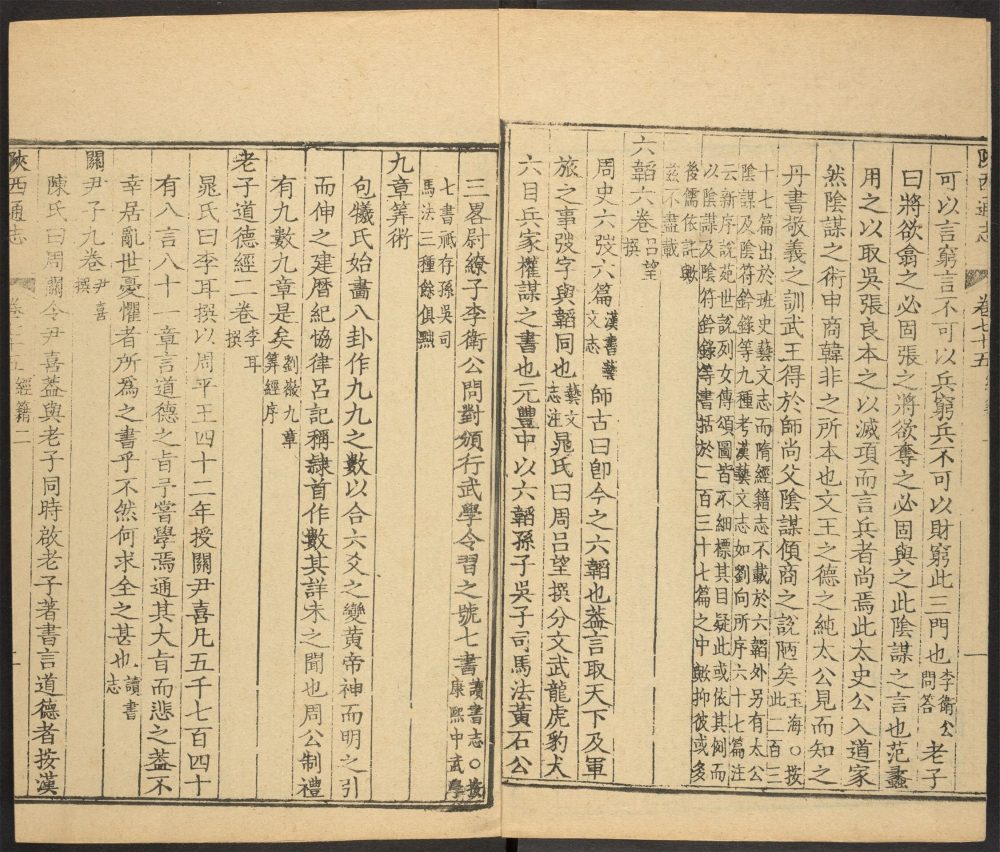 陝西通志
卷七十五
一
可以言窮言不可以兵窮兵不可以財窮此三門也李衛公問答老子
曰將欲翕之必固張之將欲奪之必固與之此陰謀之言也范蠡
用之以取吳張良本之以滅項而言兵者尚焉此太史公入道家
然陰謀之術申商韓非之所本也文王之德之純太公見而知之
丹書敬義之訓武王得於師尚父陰謀傾商之說陋矣玉海○按此二百三
十七篇出於班史藝文志而隋經籍志不載於六韜外另有太公
陰謀及陰符鈐錄等九種考漢藝文志如劉向所序六十七篇注
云新序說苑世說列女傳頌圖皆不細標其目疑此或依其例而
以陰謀及陰符鈐錄等書括於二百三十七篇之中歟抑彼或多
後儒依託歟
茲不盡載
六韜六卷呂望撰
周史六弢六篇漢書藝文志師古曰卽今之六韜也葢言取天下及軍
旅之事弢字與韜同也藝文志注晁氏曰周呂望撰分文武龍虎豹犬
六目兵家權謀之書也元豐中以六韜孫子吳子司馬法黃石公
三畧尉繚子李衛公問對頒行武學令習之號七書讀書志○按康熙中武學
七書祗存孫吳司
馬法三種餘俱黜
九章筭術
句犧氏始畵八卦作九九之數以合六爻之變黃帝神而明之引
而伸之建曆紀協律呂記稱隷首作數其詳未之聞也周公制禮
有九數九章是矣劉徽九章筭經序
老子道德經二卷李耳撰
晁氏曰李耳撰以周平王四十二年授關尹喜凡五千七百四十
有八言八十一章言道德之旨予嘗學焉通其大旨而悲之葢不
幸居亂世憂懼者所爲之書乎不然何求全之甚也讀書志
關尹子九卷尹喜撰
陳氏曰周關令尹喜葢與老子同時啟老子著書言道德者按漢
陝西通志
卷七十五
經籍二